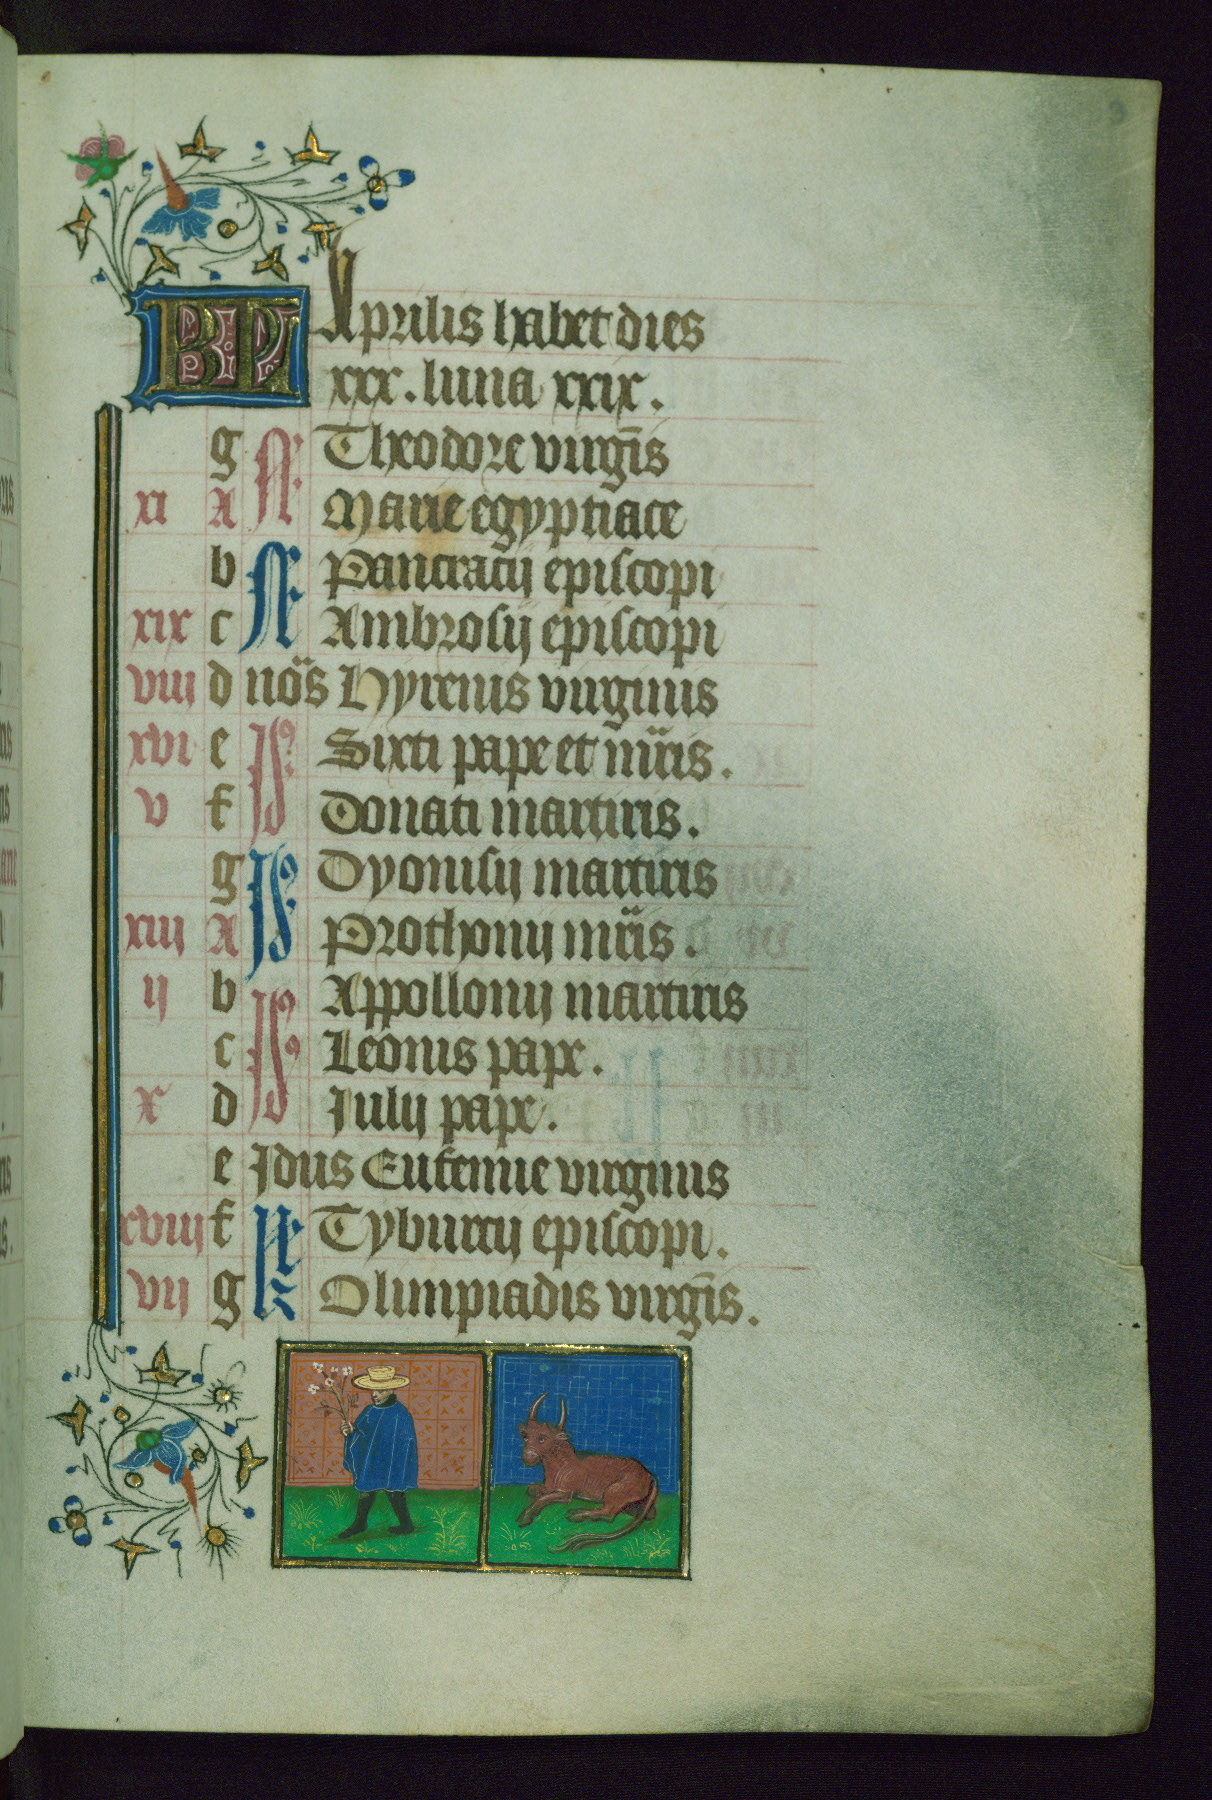 KL Aprilis habet dies
xxx. luna xxix.
g N Theodore virgīs
xi A Marie egyptiace
b N Pancracij episcopi
xix c Ambrosij episcopi
viii d noͣs Hyrenis virginis
xvi e Id Sixti pape et mr̄is.
v f Donati martiris.
g Id Dyonisij martiris
xiii A Prothonij mr̄is.
ij b Id Appollonij martiris
c Leonis pape.
x d Iulij pape.
e Idus Eufemie virginis
xviij f kl Tyburcij episcopi.
vij g Olimpiadis virgīs.